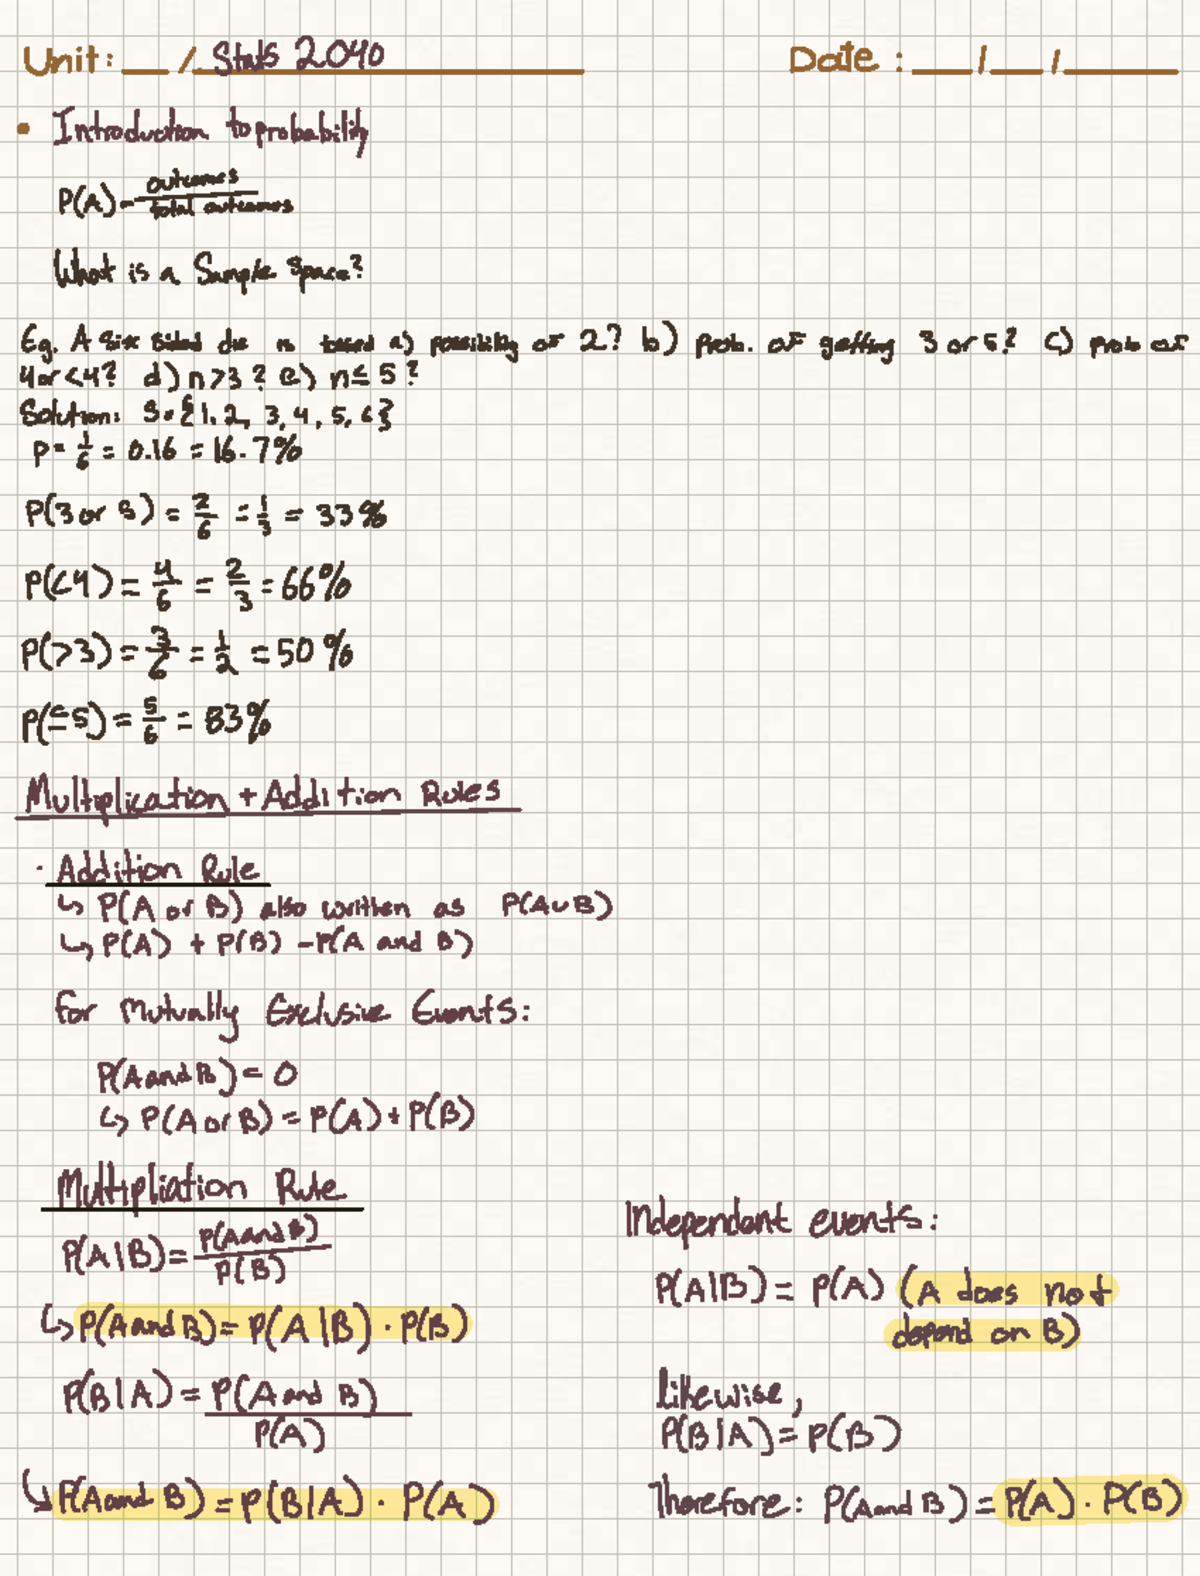 Unit: __ / Stats 2040 Date : __ / __ / __
• Introduction to probability
P(A) = outcomes / total outcomes
What is a Sample Space?
Eg. A six sided die is tossed a) possibility of 2? b) prob. of getting 3 or 5? c) prob of
4 or <4? d) n>3? e) n≤5?
Solution: S={1, 2, 3, 4, 5, 6}
P = 1/6 = 0.16 = 16.7%
P(3 or 5) = 2/6 = 1/3 = 33%
P(<4) = 4/6 = 2/3 = 66%
P(>3) = 3/6 = 1/2 = 50%
P(≤5) = 5/6 = 83%
Multiplication + Addition Rules
· Addition Rule
↳ P(A or B) also written as P(A∪B)
↳ P(A) + P(B) - P(A and B)
for Mutually Exclusive Events:
P(A and B) = 0
↳ P(A or B) = P(A) + P(B)
Multipliation Rule
P(A|B) = P(A and B) / P(B)
↳ P(A and B) = P(A|B) · P(B)
P(B|A) = P(A and B) / P(A)
↳ P(A and B) = P(B|A) · P(A)
Independant events:
P(A|B) = P(A) (A does not
depend on B)
likewise,
P(B|A) = P(B)
Therefore: P(A and B) = P(A) · P(B)